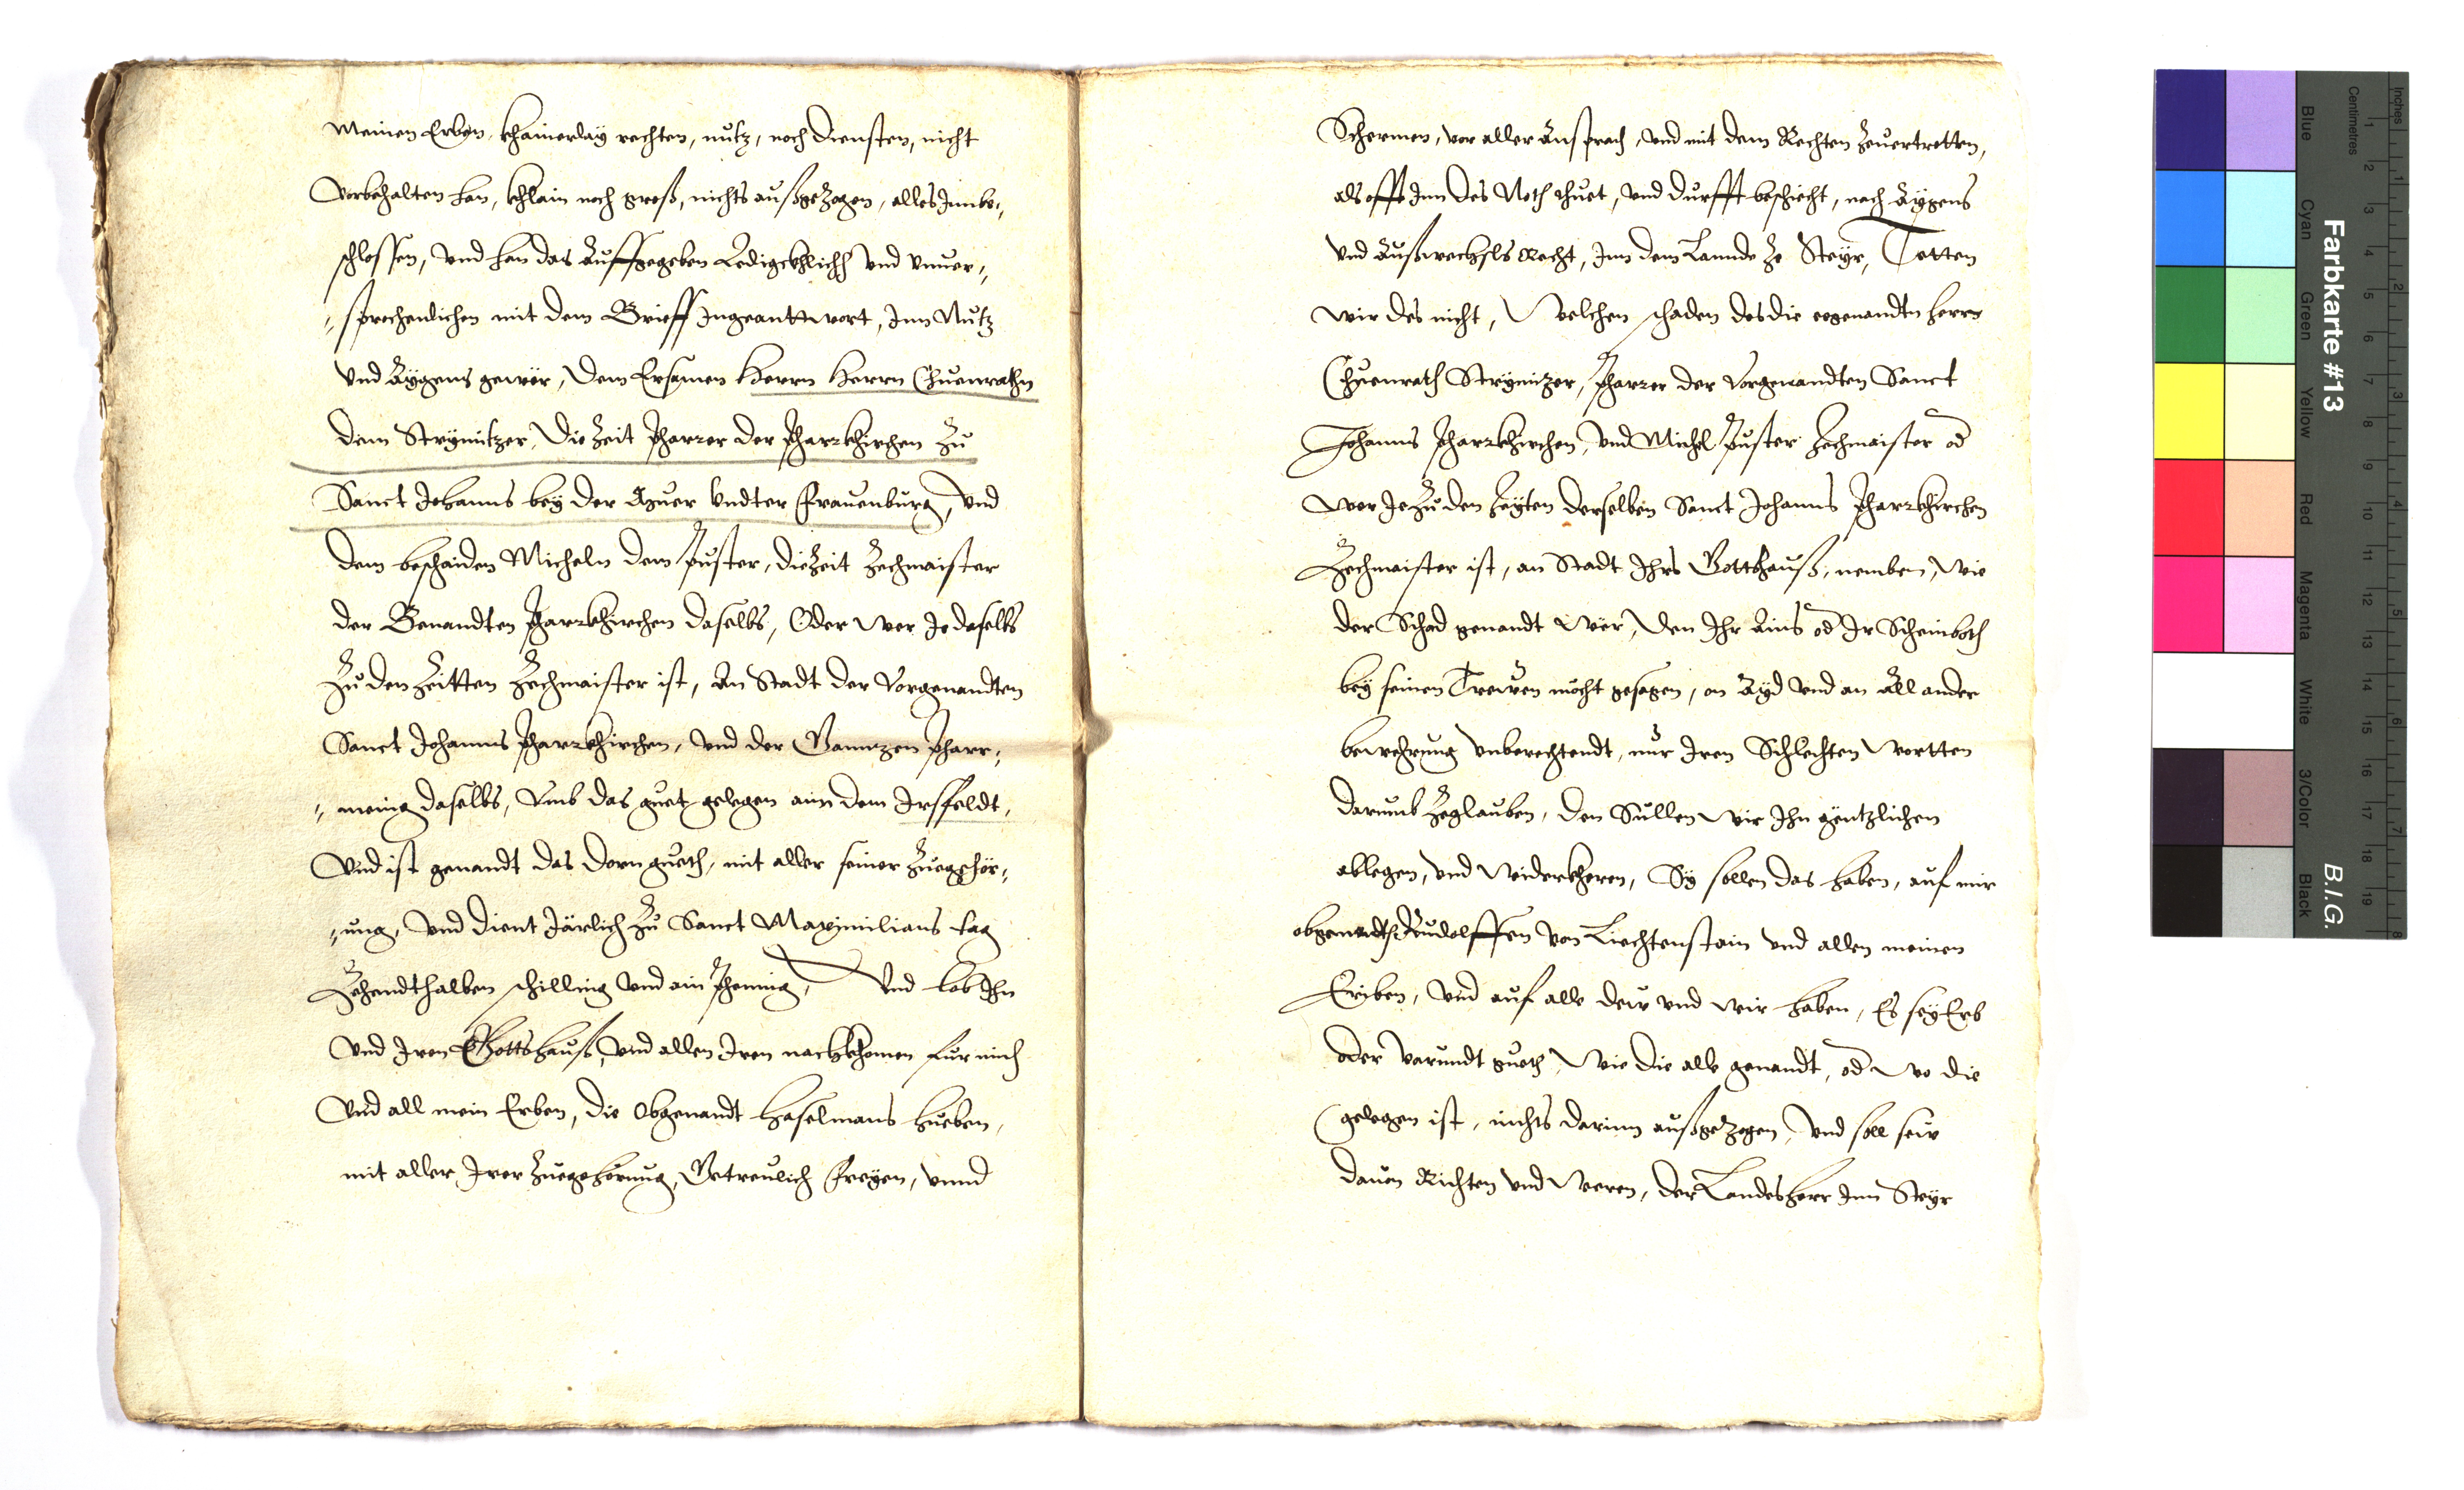 Meinen Erben, khainerlaÿ rechten, nutz, noch diensten, nicht
Vorbehalten han, khlain noch groß, nichts außgezogen, alles Innbe,,
schlossen, Vnd han das Auffgegeben Ledigckhlich Vnd Vnuer,,
,,sprechenlichen mit dem Brieff Ingeanttwort, Inn Nutz
Vnd Aÿgens gewër, Dem Ersamen Herrn Herrn Chuenrathn
dem Strÿmitzer, Die Zeit Pharrer der Pharrkhirchen Zu
Sanct Johanns beÿ der Ahuer Vndter Frauenburg, Vnd
dem beschaiden Micheln dem Puster, die Zeit Zechmaister
der Benandten Pharrkhirchen daselbs, Oder Wer Je daselbs
Zu den Zeitten Zechmaister ist, An Stadt der Vorgenandten
Sanct Johanns Pharrkhirchen, Vnd der Ganntzen Pharr,,
,,menig daselbs, Vmb das guet gelegen ain dem Irsfeldt,
Vnd ist genandt das dorn gueth, mit aller seiner Zuegehör,,
,,ung, Vnd dient Järlich Zu Sanct Maximilians tag
Zehendthalben schilling Vnd ain Phening, Vnd lob Ihn
Vnd Iren Gottshauß, Vnd allen Iren nachkhomen für mich
Vnd all mein Erben, die Obgenandt Haselmans hueben,
mit aller Irer Zuegehörung, Getreulich Freÿen, Vnnd
Schermen, vor aller Ansprach, Vnd mit dem Rechten Zeuertretten,
als offt Inn des Noth thuet, Vnd durfft beschicht, nach Aÿgens
Vnd Außwechsls Recht, Inn dem Lannde Ze Steÿr, Tetten
Wir des nicht, Welchen schaden des die eegenandtn Herrn
Chuenrath Strÿmitzer, Pharrer der Vorgenandten Sanct
Johanns Pharrkhirchen, Vnd Michel Puster Zechmaister od
Wer Je Zu den Zeÿten derselben Sanct Johanns Pharrkhirchen
Zechmaister ist, an Stadt Ihrs Gottshauß, nemben, Wie
der Schad genandt Wër, Den Ihr Ains od Ir Scheinboth
beÿ seinen Treẅen möcht gesagen, on Aÿd Vnd an All ander
bewehrung Vnberechtendt, nur Iren Schlechten Wortten
darumb Zeglauben, Den Sullen Wir Ihn gëntzlichen
ablegen, Vnd Widerkheren, Sÿ sollen das haben, auf mir
obgenandth Rudolffen Von Liechtenstain Vnd allen meinen
Eriben, Vnd auf alle deẅ Vnd Wir haben, Es seÿ Erb
oder Varundt gueth, Wie die alle genandt, od Wo die
gelegen ist, nichts darinn außgezogen, Vnd soll seiv
dauon Richten Vnd Weren, der Landesherr Inn Steÿr
Farbkarte #13
B.I.G.
Inches
Centimetres
Blue
Cyan
Green
Yellow
Red
Magenta
White
3/Color
Black